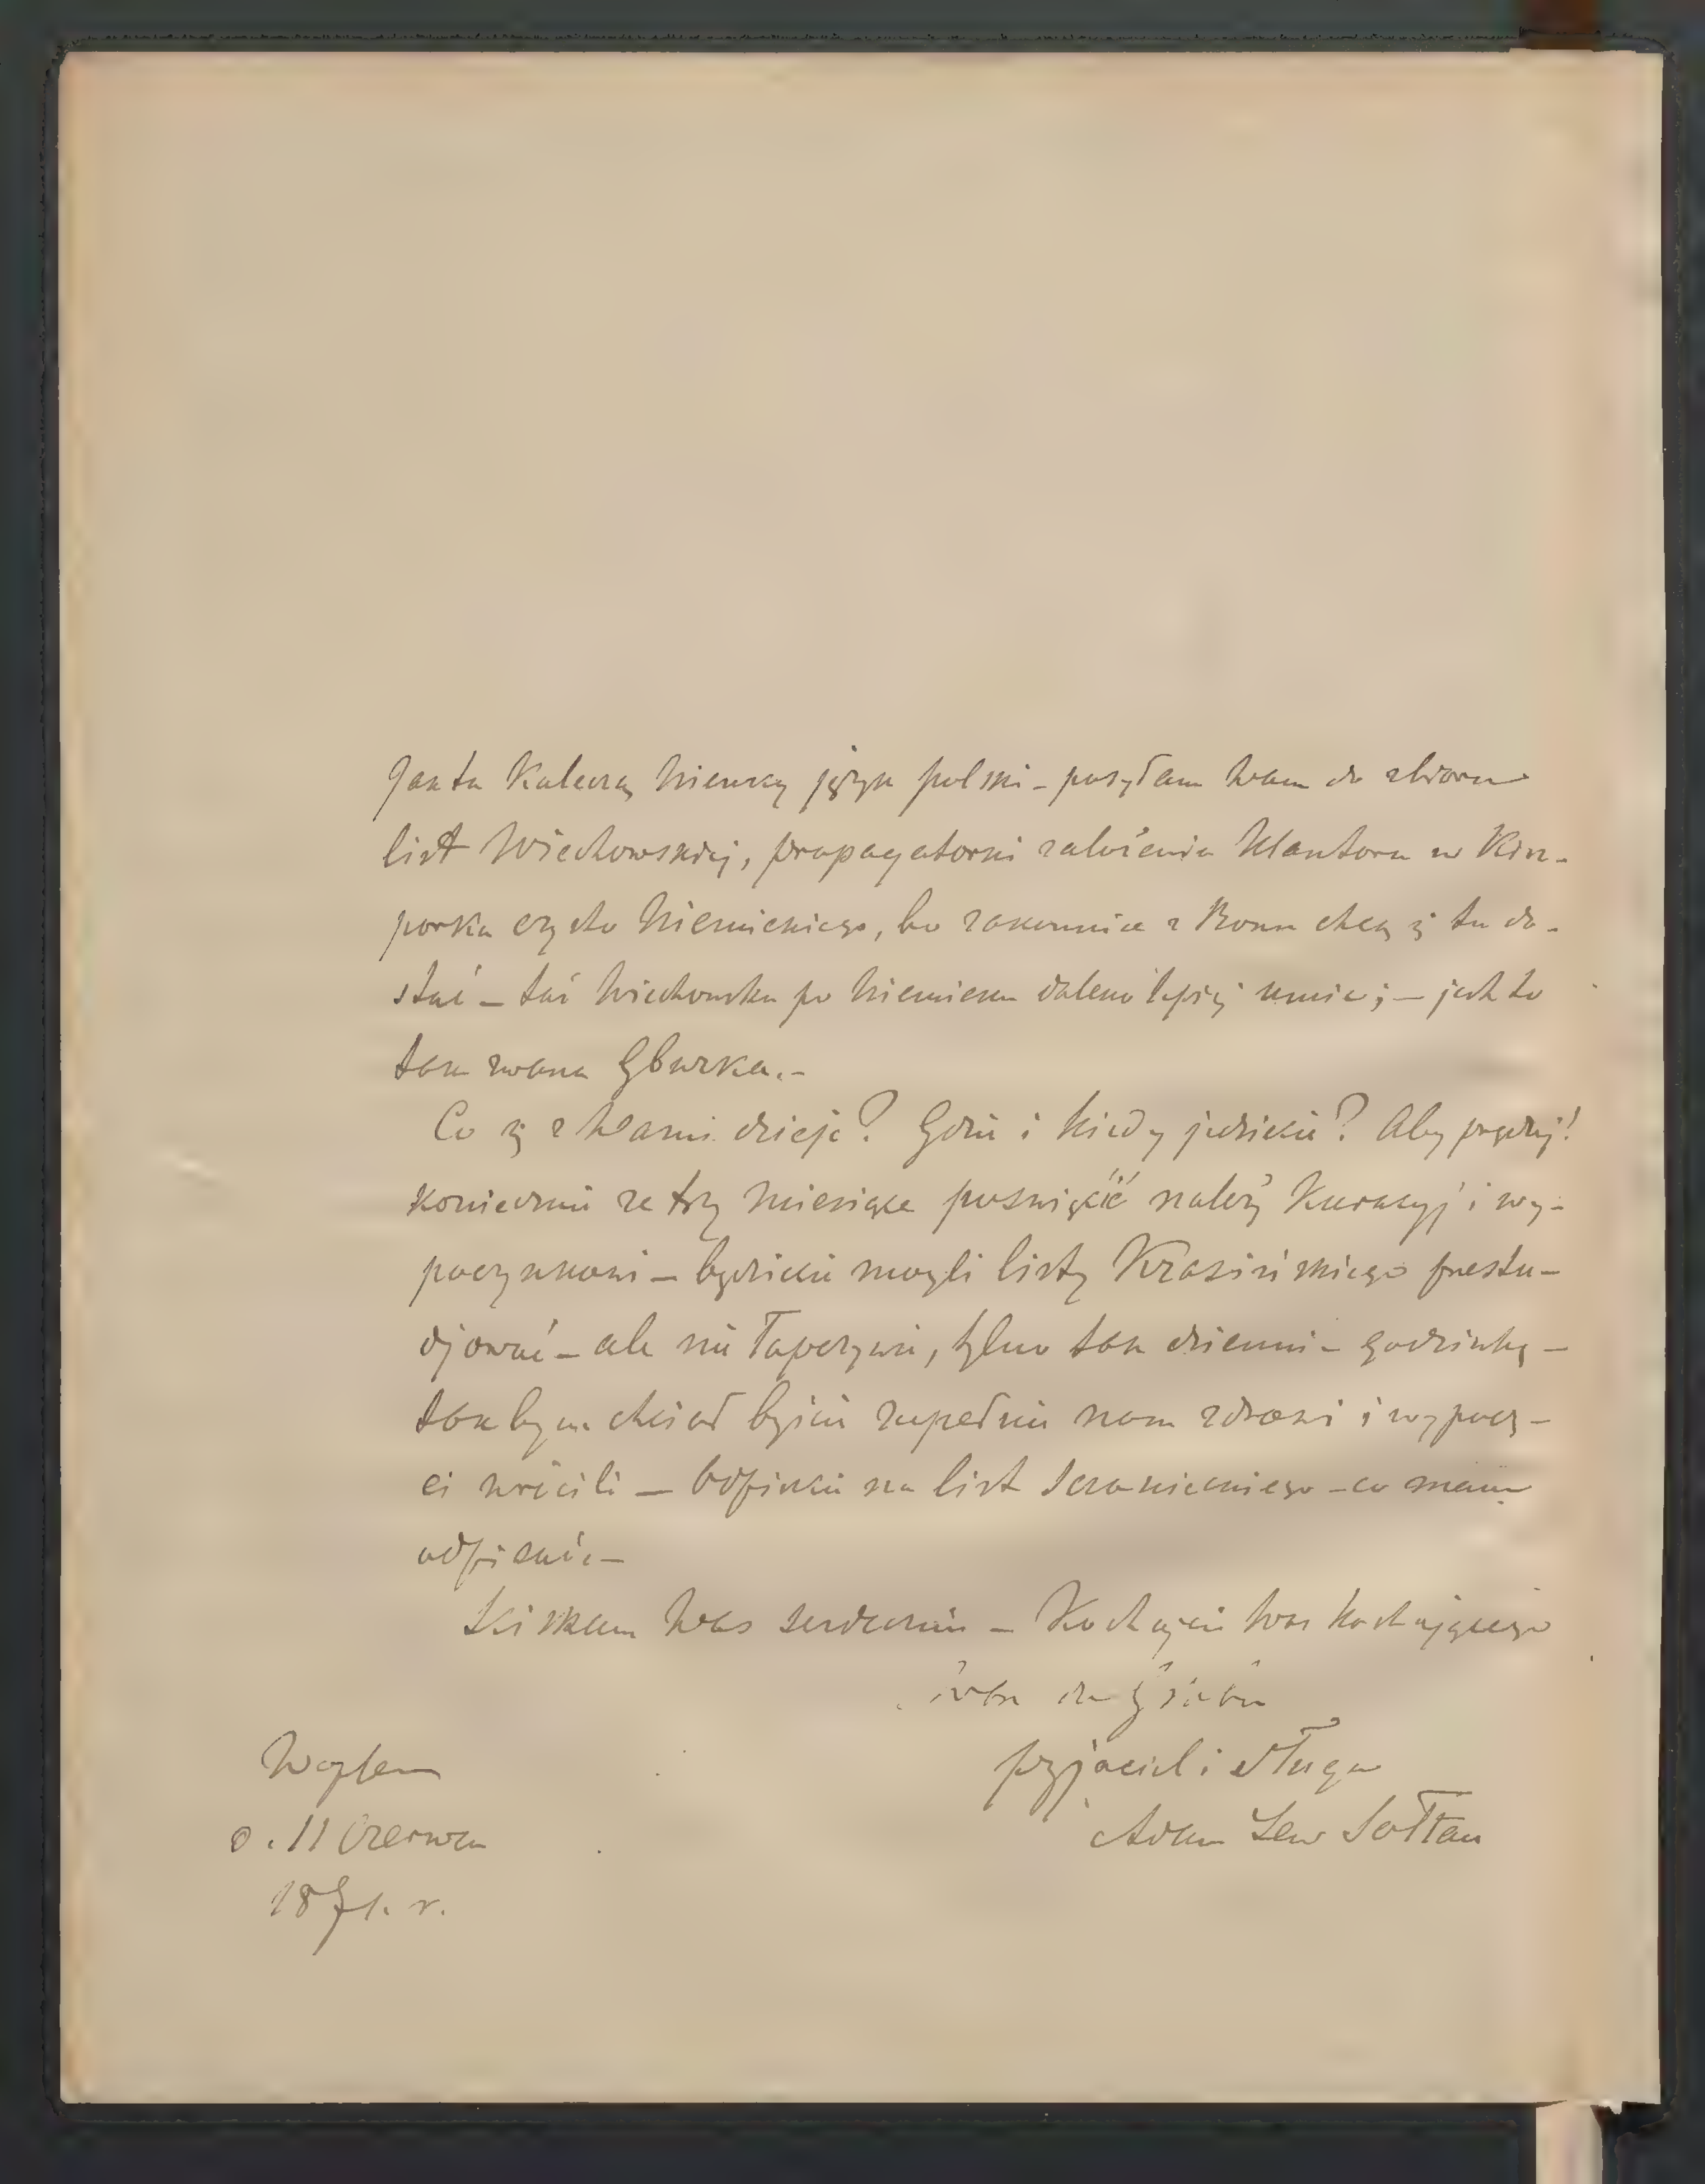 Jak tu Kaleczą Niemcy język polski – posyłam Wam do zbioru
list Wiechowskiej, propagatorki założenia Klasztoru w
czysto Niemieckiego, bo zakonnice z Bonn chcą się tu do-
stać – taż Wiechowska po Niemiecku daleko lepiej umie; – jest to
tak zwana Gburka. –
Co się z Wami dzieje? Gdzie i kiedy jedziecie? Aby prędzej!
koniecznie ze trzy miesiące poświęcić należy Kuracyj i wy-
poczynkowi – będziecie mogli listy Krasińskiego przestu-
djować – ale nie łapczywie, tylko tak dziennie godzinkę –
tak bym chciał byście zupełnie nam zdrowi i wypoczę-
ci wrócili – Odpiszcie na list – co mam
odpisać –
Ściskam Was serdecznie – Kochajcie Was kochającego
przyjaciel i sługa
Adam Lew Sołtan
d. 11 Czerwca
1871. r.